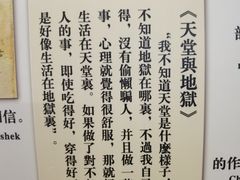 《天堂與地獄》
“我不知道天堂是什麼樣子，
不知道地獄在哪裏，不過我自
得，沒有偷懶騙人，並且做一
事，心理就覺得很舒服，那就
生活在天堂裏。如果做了對不
人的事，即使吃得好，穿得好
是好像生活在地獄裏”。
信。
shek